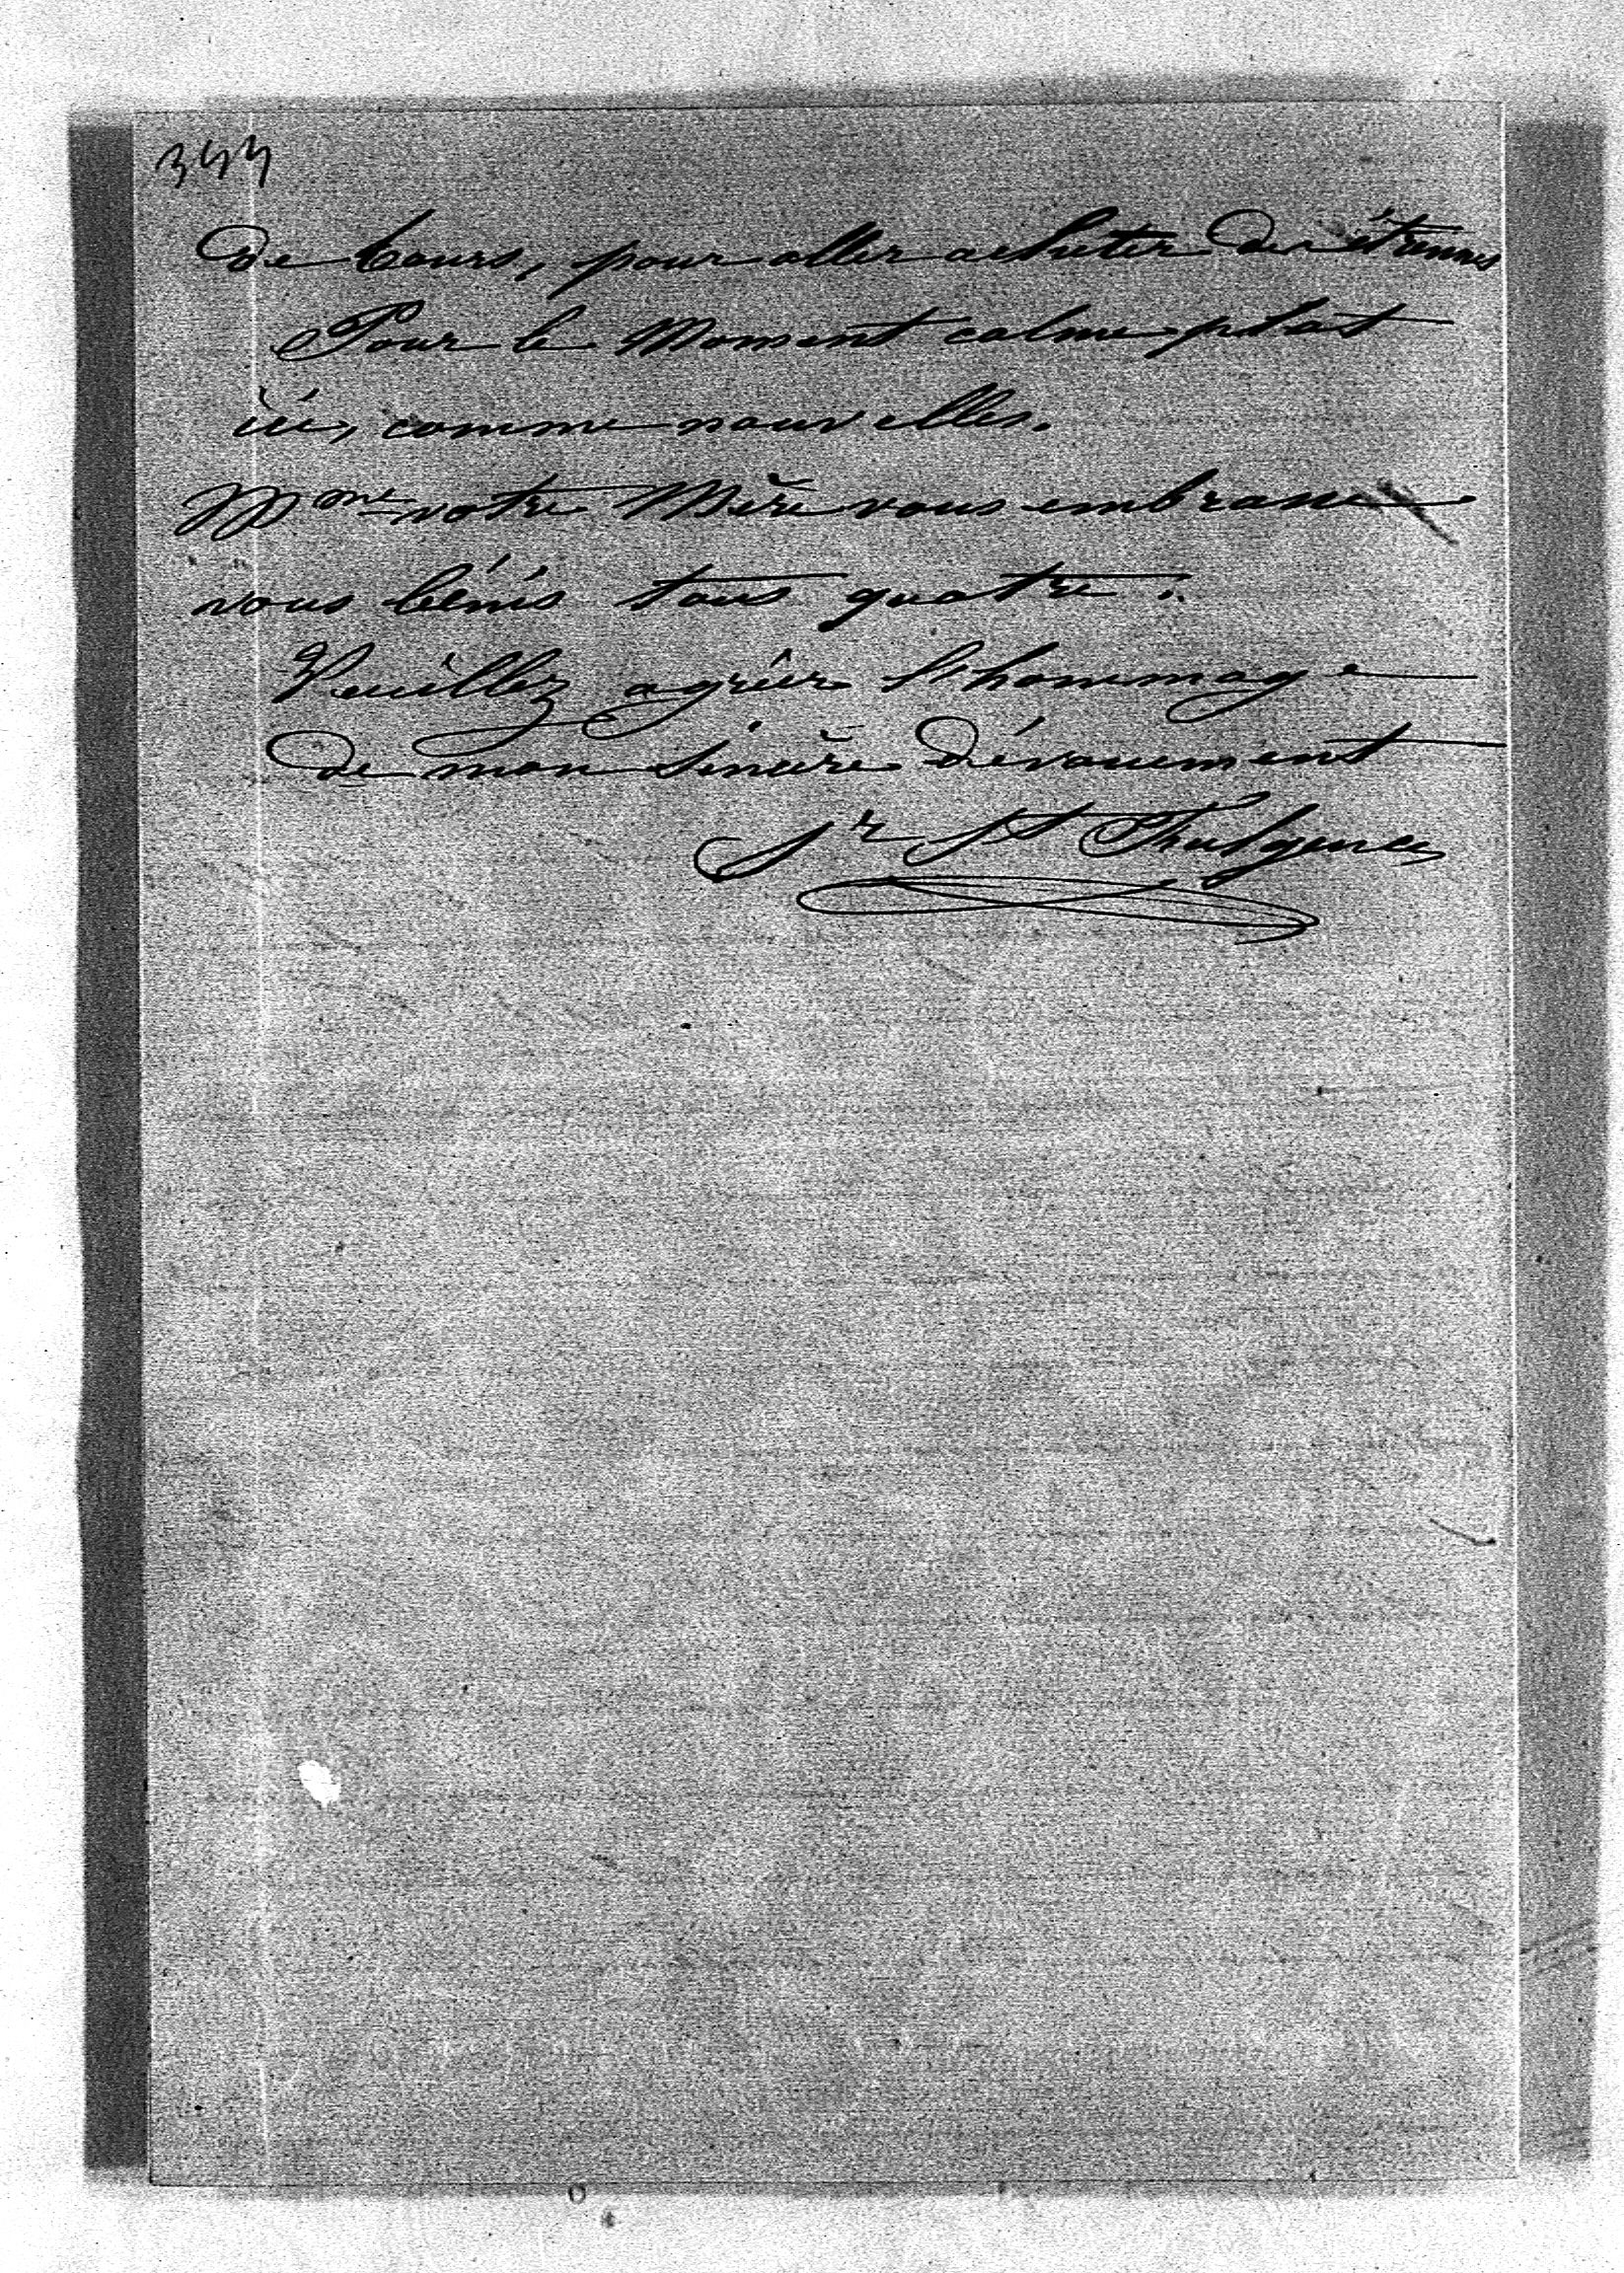 344
de Tours, pour aller acheter des étrennes
Pour le Moment calme plat
ici, comme nouvelles.
Mme votre Mère vous embrasse
vous bénis tous quatre.
Veuillez agréer l'hommage
de mon sincère dévouement
Sr St Fhulgence